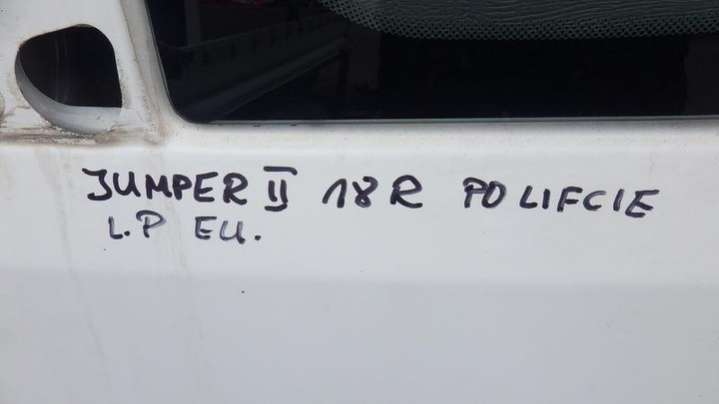 JUMPER II 18R POLIFCIE
L.P EU.